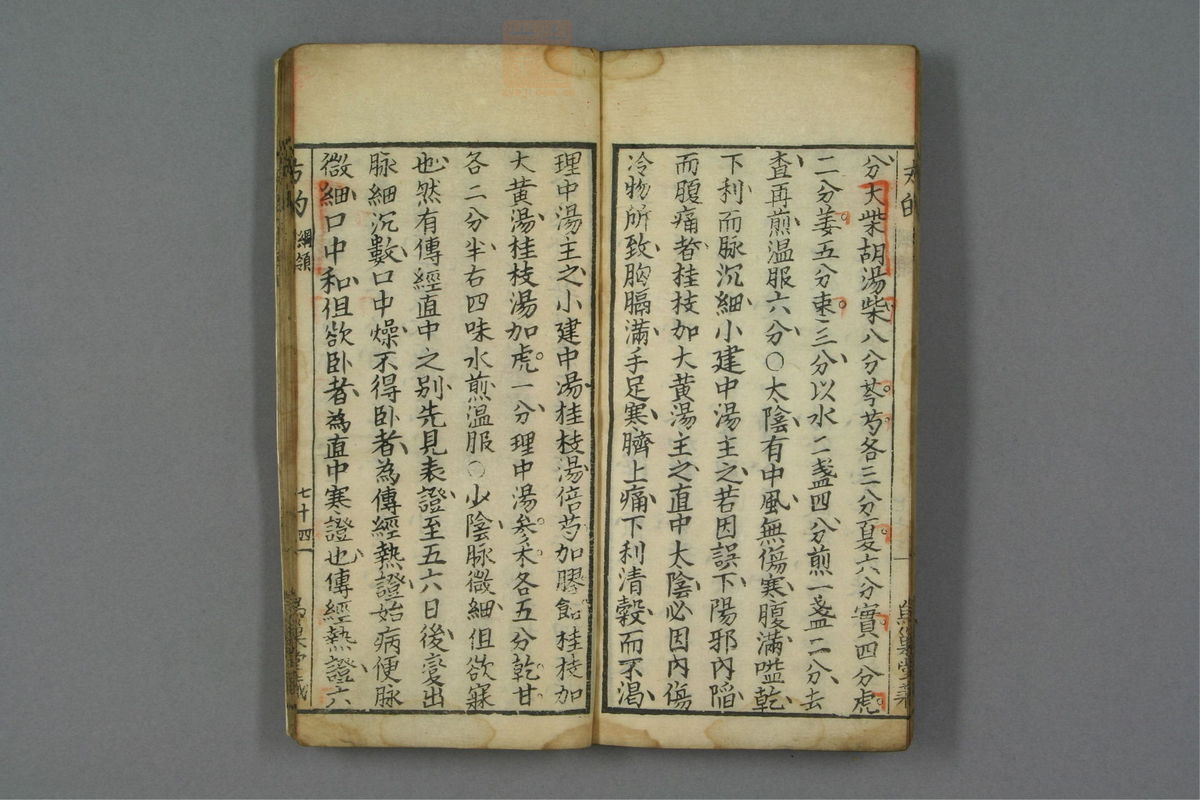 分大柴胡湯柴八分芩芍各三分夏六分實四分虎
二分姜五分棗三分以水二盞四分煎一盞二分去
査再煎溫服六分○太陰有中風無傷寒腹滿嗌乾
下利而脉沉細小建中湯主之若因誤下陽邪內陷
而腹痛者桂枝加大黃湯主之直中太陰必因內傷
冷物所致胸膈滿手足寒臍上痛下利清穀而不渴
理中湯主之小建中湯桂枝湯倍芍加膠飴桂枝加
大黃湯桂枝湯加虎一分理中湯參朮各五分乾甘
各二分半右四味水煎溫服○少陰脉微細但欲寐
也然有傳經直中之別先見表證至五六日後變出
脉細沉數口中燥不得臥者為傳經熱證始病便脉
微細口中和但欲臥者為直中寒證也傳經熱證六
方的
綱領
七十四